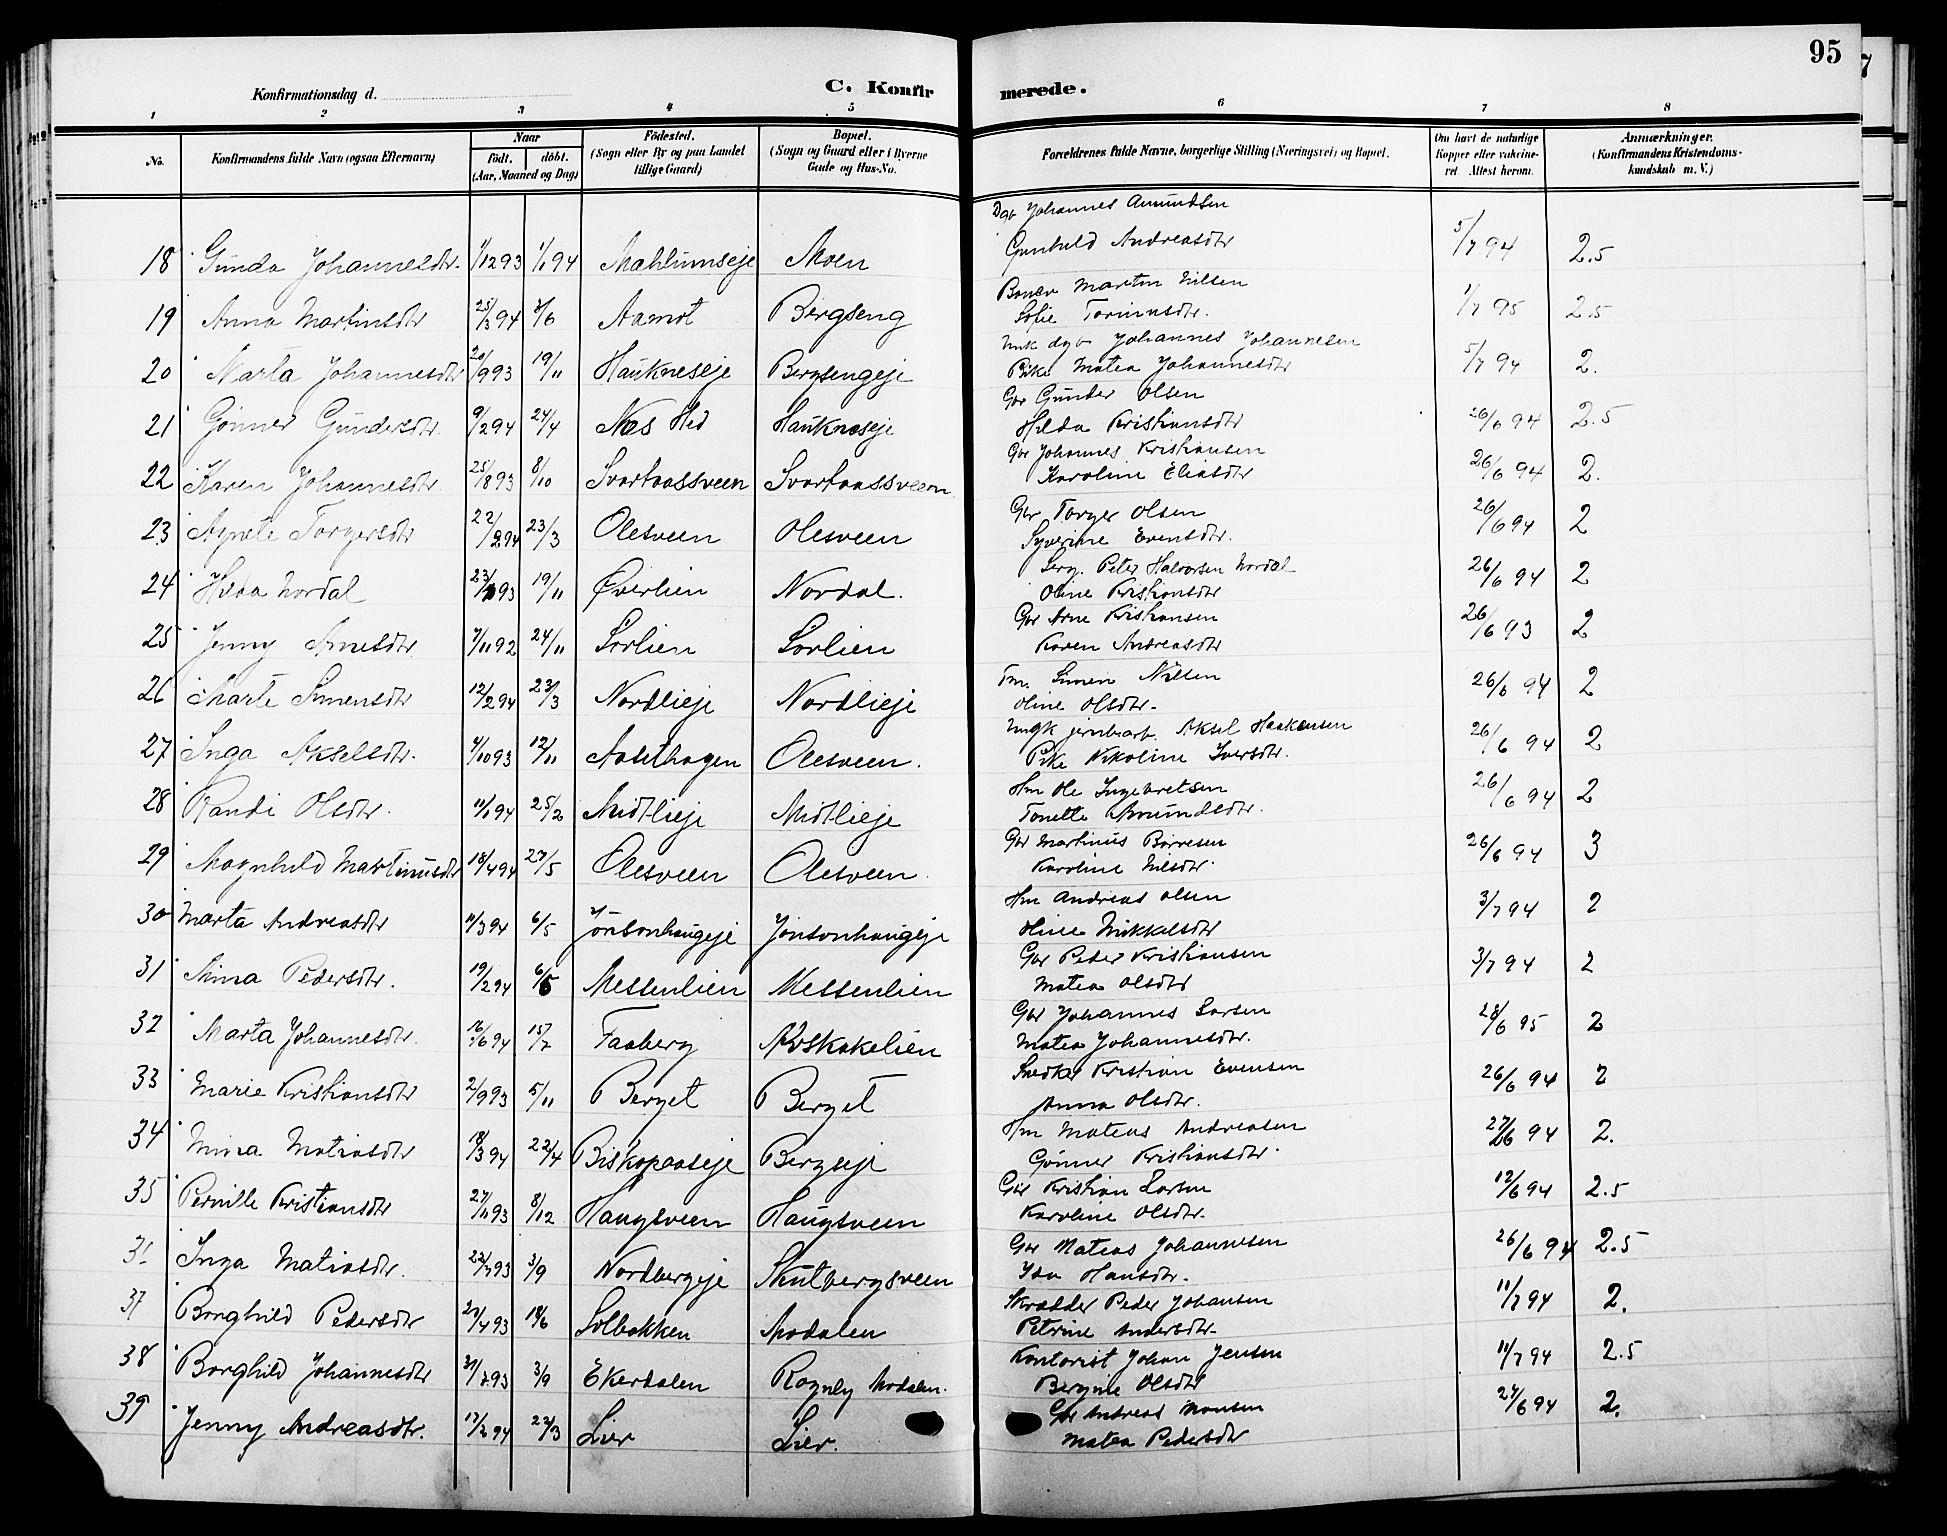 95
Konfirmationsdag d.
C. Konfir merede.
1 2 3 4 5 6 7 8
No. Konfirmandens fulde Navn (ogsaa Efternavn) Naar født. døbt. (Aar, Maaned og Dag) Fødested. (Sogn eller By og paa Landet tillige Gaard) Bopæl. (Sogn og Gaard eller i Byerne Gade og Hus-No. Forældrenes fulde Navne, borgerlige Stilling (Næringsvei) og Bopæl. Om havt de naturlige Kopper eller vakcineret. Attest herom. Anmærkninger. (Konfirmandens Kristendomskundskab m. V.)
Dgb Johannes Amundsen
18 Gunda Johannesdtr. 1/12 93 1/1 94 Mahlumseje Moen Gunhild Andreasdtr 5/7 94 2.5
Martin Nilsen
19 Anna Martinsdtr 25/3 94 3/6 Aamot Bergseng Sofie 1/7 95 2.5
Unk dgb Johannes Johannesen
20 Marta Johannesdtr 20/9 93 19/11 Haukneseje Bergsengeje Pike Matea Johannesdtr 5/7 94 2.
Gbr Gunder Olsen
21 Gønner Gundersdtr. 9/2 94 24/4 Næs Hed Haukneseje Hilda Kristiansdtr 26/6 94 2.5
Gbr Johannes Kristiansen
22 Karen Johannesdtr. 25/8 93 8/10 Svartaassveen Svartaassveen Karoline Eliasdtr 26/6 94 2.
Gbr Torger Olsen
23 Agnete Torgersdtr 22/2 94 23/3 Olesveen Olesveen Syverine Evensdtr. 26/6 94 2
Serg. Peter Halvorsen Nordal
24 Hilda Nordal 19/11 Øverlien Nordal. Oline Kristiansdtr 26/6 94 2
Gbr Arne Kristiansen
25 Jenny Arnesdtr 7/11 92 24/11 Sørlien Sørlien Karen Andreasdtr 26/6 93 2
Tm. Simen Nilsen
26 Marte Simensdtr 12/2 94 23/3 Nordlieje Nordlieje Oline Olsdtr. 26/6 94 2
Ungk jernbarb. Aksel Haakensen
27 Inga Akselsdtr. 4/10 93 12/11 Aaselhagen Olesveen. Pike Nikoline Iversdtr. 26/6 94 2
Hm Ole Ingebretsen
28 Randi Olsdtr. 11/1 94 25/2 Midtlieje Midtlieje Tonette Amundsdtr. 26/6 94 2
Gbr Martinus Børresen
29 Magnhild Martinusdtr 18/4 94 27/5 Olesveen Olesveen. Karoline Nilsdtr. 26/6 94 3
Hm Andreas Olsen
30 Marta Andreasdtr 11/3 94 6/5 Jonsonhaugeje Jonsonhaugeje Oline Mikkelsdtr 3/7 94 2
Gbr Peder Kristiansen
31 Mina Pedersdtr. 19/2 94 6/5 Messenlien Messenlien Matea Olsdtr 3/7 94 2
Gbr Johannes Larsen
32 Marta Johannesdtr. 16/6 94 15/7 Faaberg Matea Johannesdtr. 28/6 95 2
Snedker Kristian Evensen
33 Marie Kristiansdtr 2/9 93 5/11 Berget Berget Anna Olsdtr. 26/6 94 2
Hm Mateas Andreasen
34 Mina Matiasdtr 18/3 94 22/4 Biskopaaseje Bergseje Gønner Kristiansdtr. 27/6 94 2.
Gbr Kristian Larsen
35 Pernille Kristiansdtr 27/11 93 8/12 Haugsveen Haugsveen Karoline Olsdtr. 12/6 94 2.5
Gbr Mateas Johannesen
36 Inga Matiasdtr. 22/7 93 3/9 Nordbergeje Skutbergsveen Ida Hansdtr. 26/6 94 2.5
Skrædder Peder Johansen
37 Borghild Pedersdtr 27/4 93 18/6 Solbakken Modalen Petrine Andersdtr. 11/7 94 2.
Kontorist Johan Jensen
38 Borghild Johannesdtr 31/7 93 3/9 Ekerdalen Rognly Modalen. Bergine Olsdtr 11/7 94 2.5
Gbr Andreas Monsen
39 Jenny Andreasdtr. 17/2 94 22/3 Lier Lier. Matea Pedersdtr 27/6 94 2.